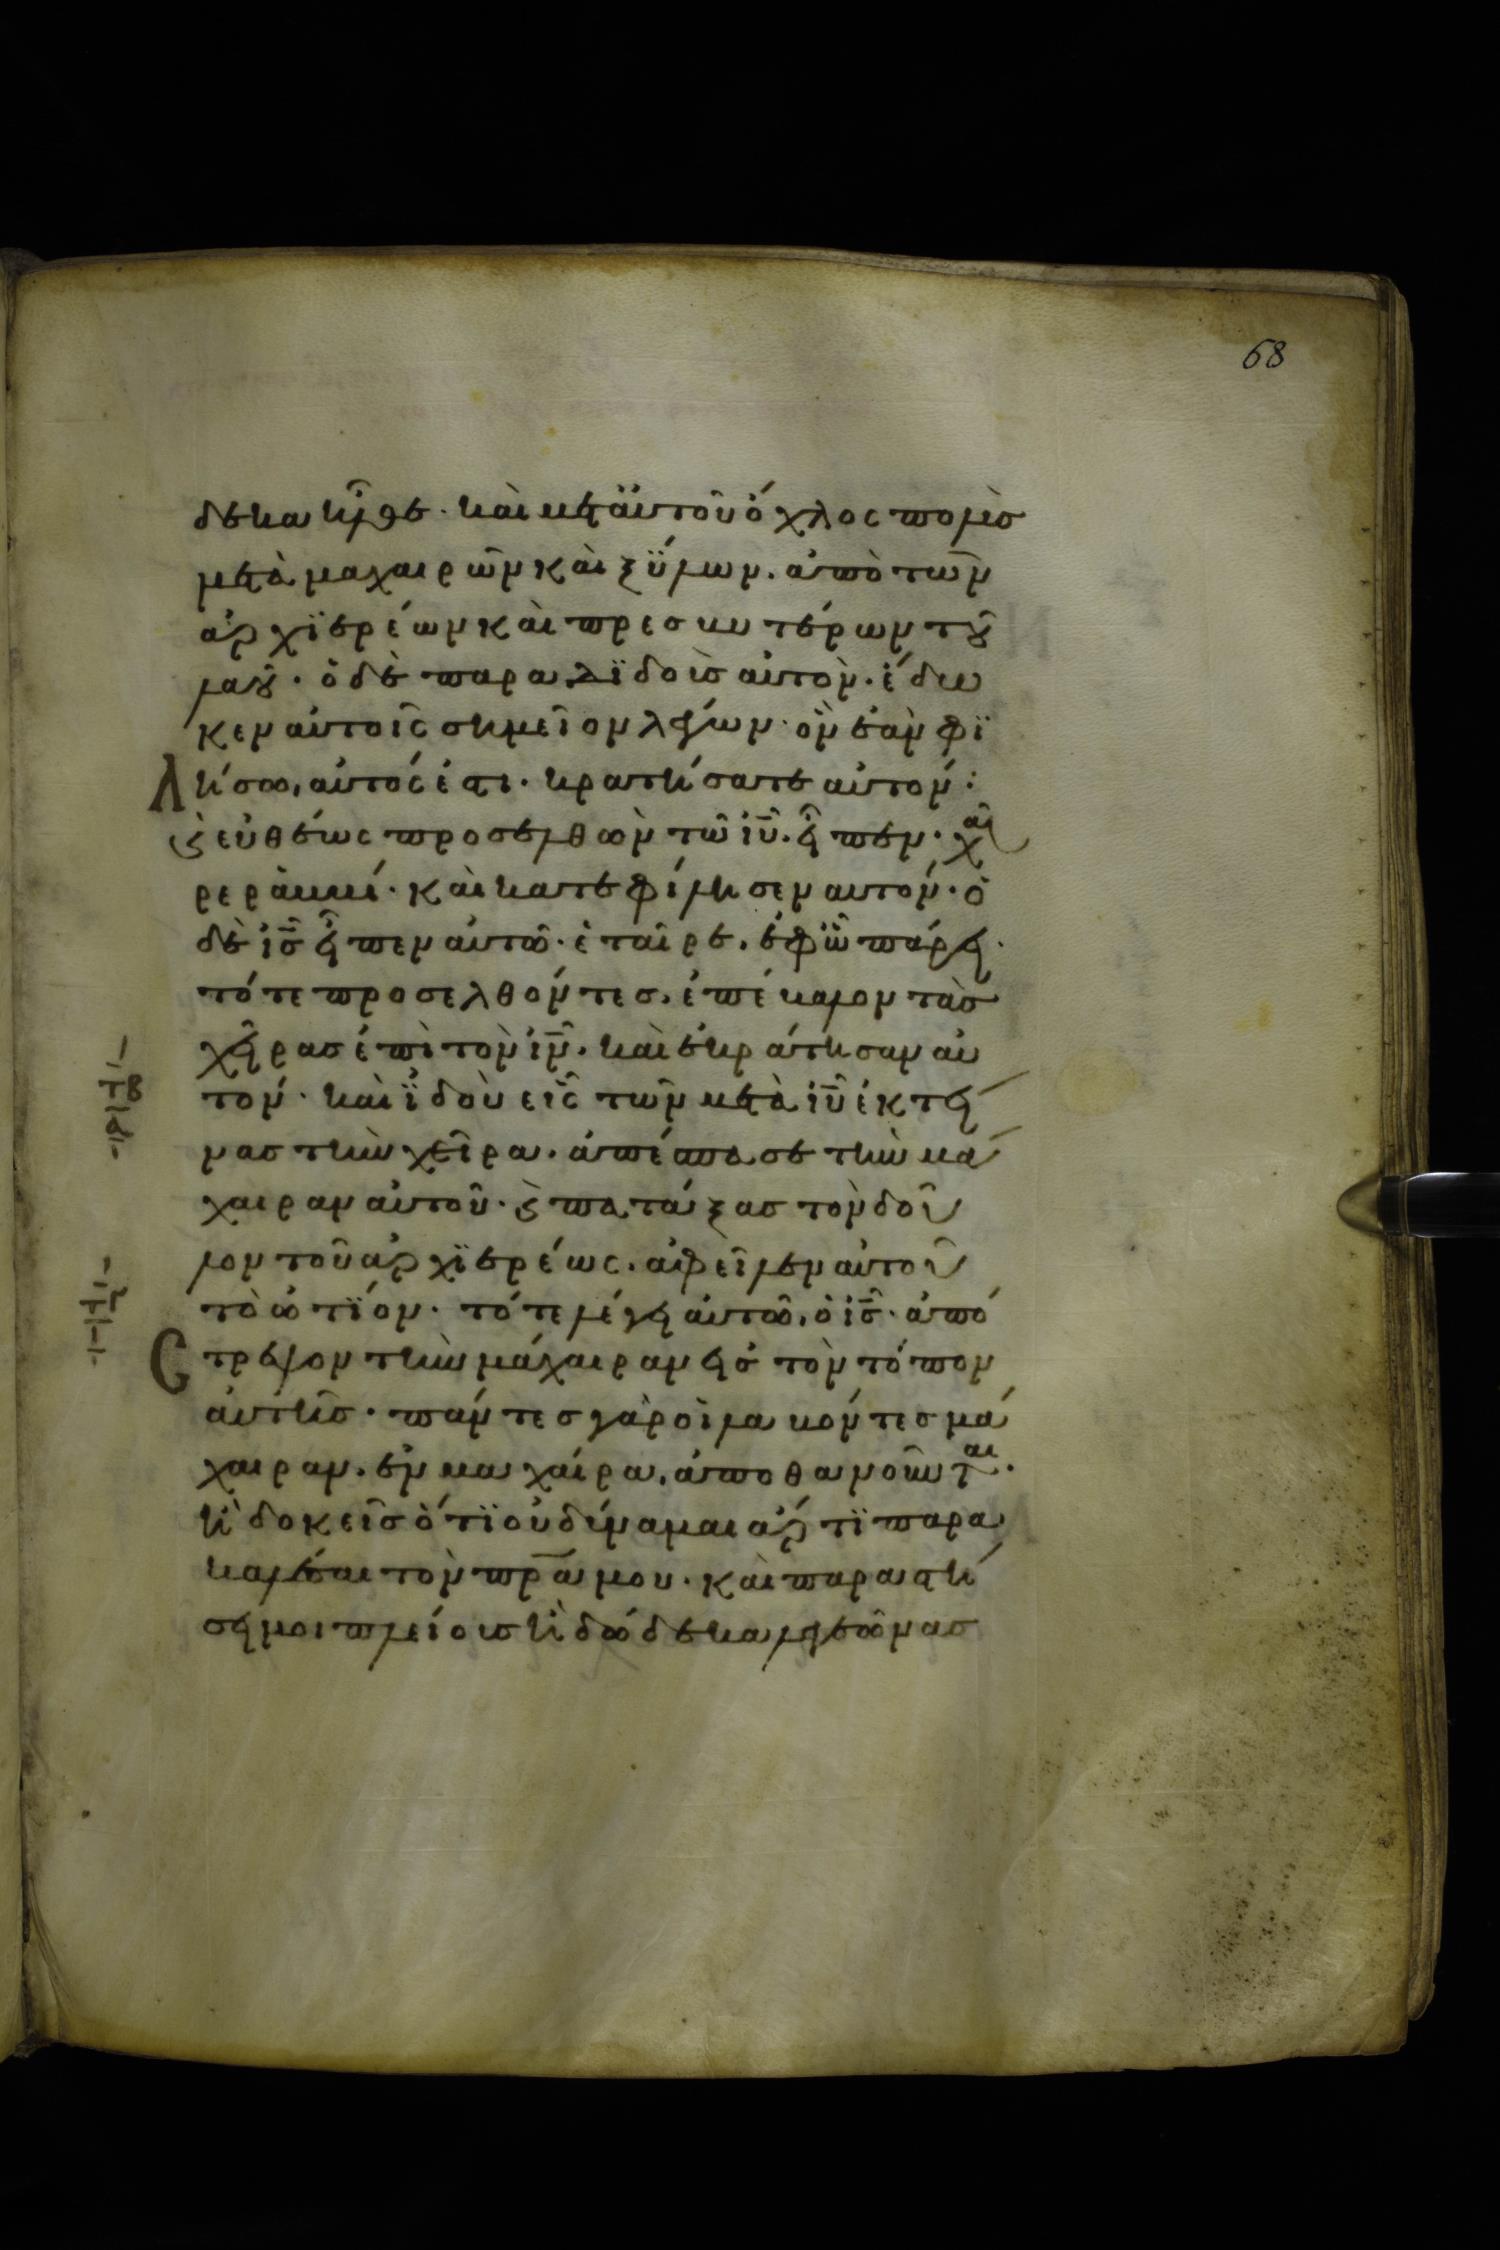 68
δεκα ἦλθε· καὶ μετ' ἀυτοῦ ὄχλος πολὺσ
μετὰ μαχαιρῶν καὶ ξΰλων. ἀπὸ τῶν
ἀρχϊερέων καὶ πρεσβυτέρων τοῦ
λαοῦ· ὁ δὲ παραδϊδοὺσ αὐτὸν· ἔδω
κεν αὐτοῖς σημεῖον λέγων· ὃν ἐὰν φϊ
λήσω, αὐτός ἐστι· κρατήσατε αὐτόν:
ϗ εὐθέως προσελθὼν τῶ ἰῦ. εἶπεν· χαῖ
ρε ῥαββί· καὶ κατεφίλησεν αυτόν· ὁ
δὲ ἰς̅ εἶπεν αὐτῶ· ἑταῖρε, ἐφ' ὧ πάρει·
τότε προσελθόντεσ, ἐπέβαλον τὰσ
χεῖρασ ἐπὶ τὸν ἰν̅· καὶ ἐκράτησαν αυ
τον· καὶ ϊδοὺ εἷς τῶν μετὰ ἰυ̅ ἐκτεί
νασ τὴν χεῖρα. ἀπέσπασε τὴν μά
χαιραν αὐτοῦ· ϗ πατάξασ τὸν δοῦ
λον τοῦ ἀρχϊερέως. ἀφεῖλεν αὐτοῦ
τὸ ὠτΐον· τότε λέγει αὐτῶ, ὁ ἰς̅· ἀπό
στρεψον τὴν μάχαιραν εἰσ τὸν τόπον
ἀυτῆσ· πάντεσ γὰρ οἱ λαβόντεσ μά
χαιραν. ἐν μαχαίρα, ἀποθανοῦνται·
ἢ δοκεῖσ ὅτϊ οὐ δύναμαι ἄρτϊ παρα
καλέσαι τὸν πρ̅α μου· καὶ παραστή
σει μοι πλείουσ ἢ δώδεκα λεγεῶνασ